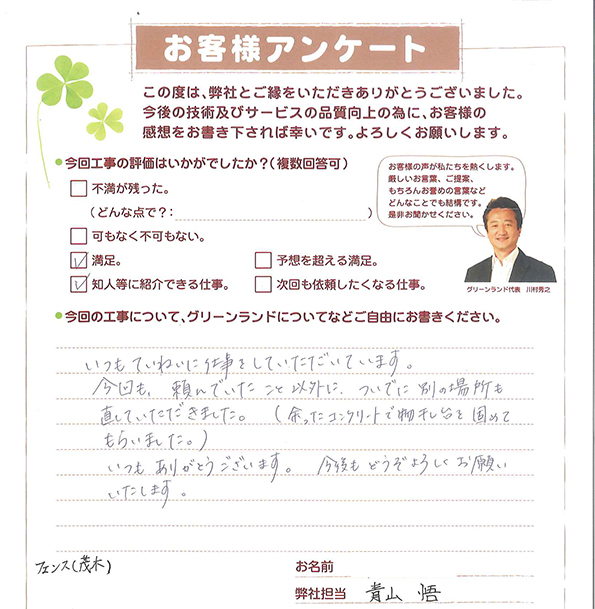 お客様アンケート
この度は、弊社とご縁をいただきありがとうございました。
今後の技術及びサービスの品質向上の為に、お客様の
感想をお書き下されば幸いです。よろしくお願いします。
●今回工事の評価はいかがでしたか?(複数回答可)
不満が残った。
(どんな点で?: )
可もなく不可もない。
満足。
予想を超える満足。
知人等に紹介できる仕事。
次回も依頼したくなる仕事。
お客様の声が私たちを熱くします。
厳しいお言葉、ご提案、
もちろんお誉めの言葉など
どんなことでも結構です。
是非お聞かせください。
グリーンランド代表 川村秀之
●今回の工事について、グリーンランドについてなどご自由にお書きください。
いつもていねいに仕事をしていただいています。
今回も、頼んでいたこと以外に、ついでに別の場所も
直していただきました。(余ったコンクリートで物干し台を固めて
もらいました。)
いつもありがとうございます。今後もどうぞよろしくお願い
いたします。
フェンス(茂木)
お名前
弊社担当 青山 悟